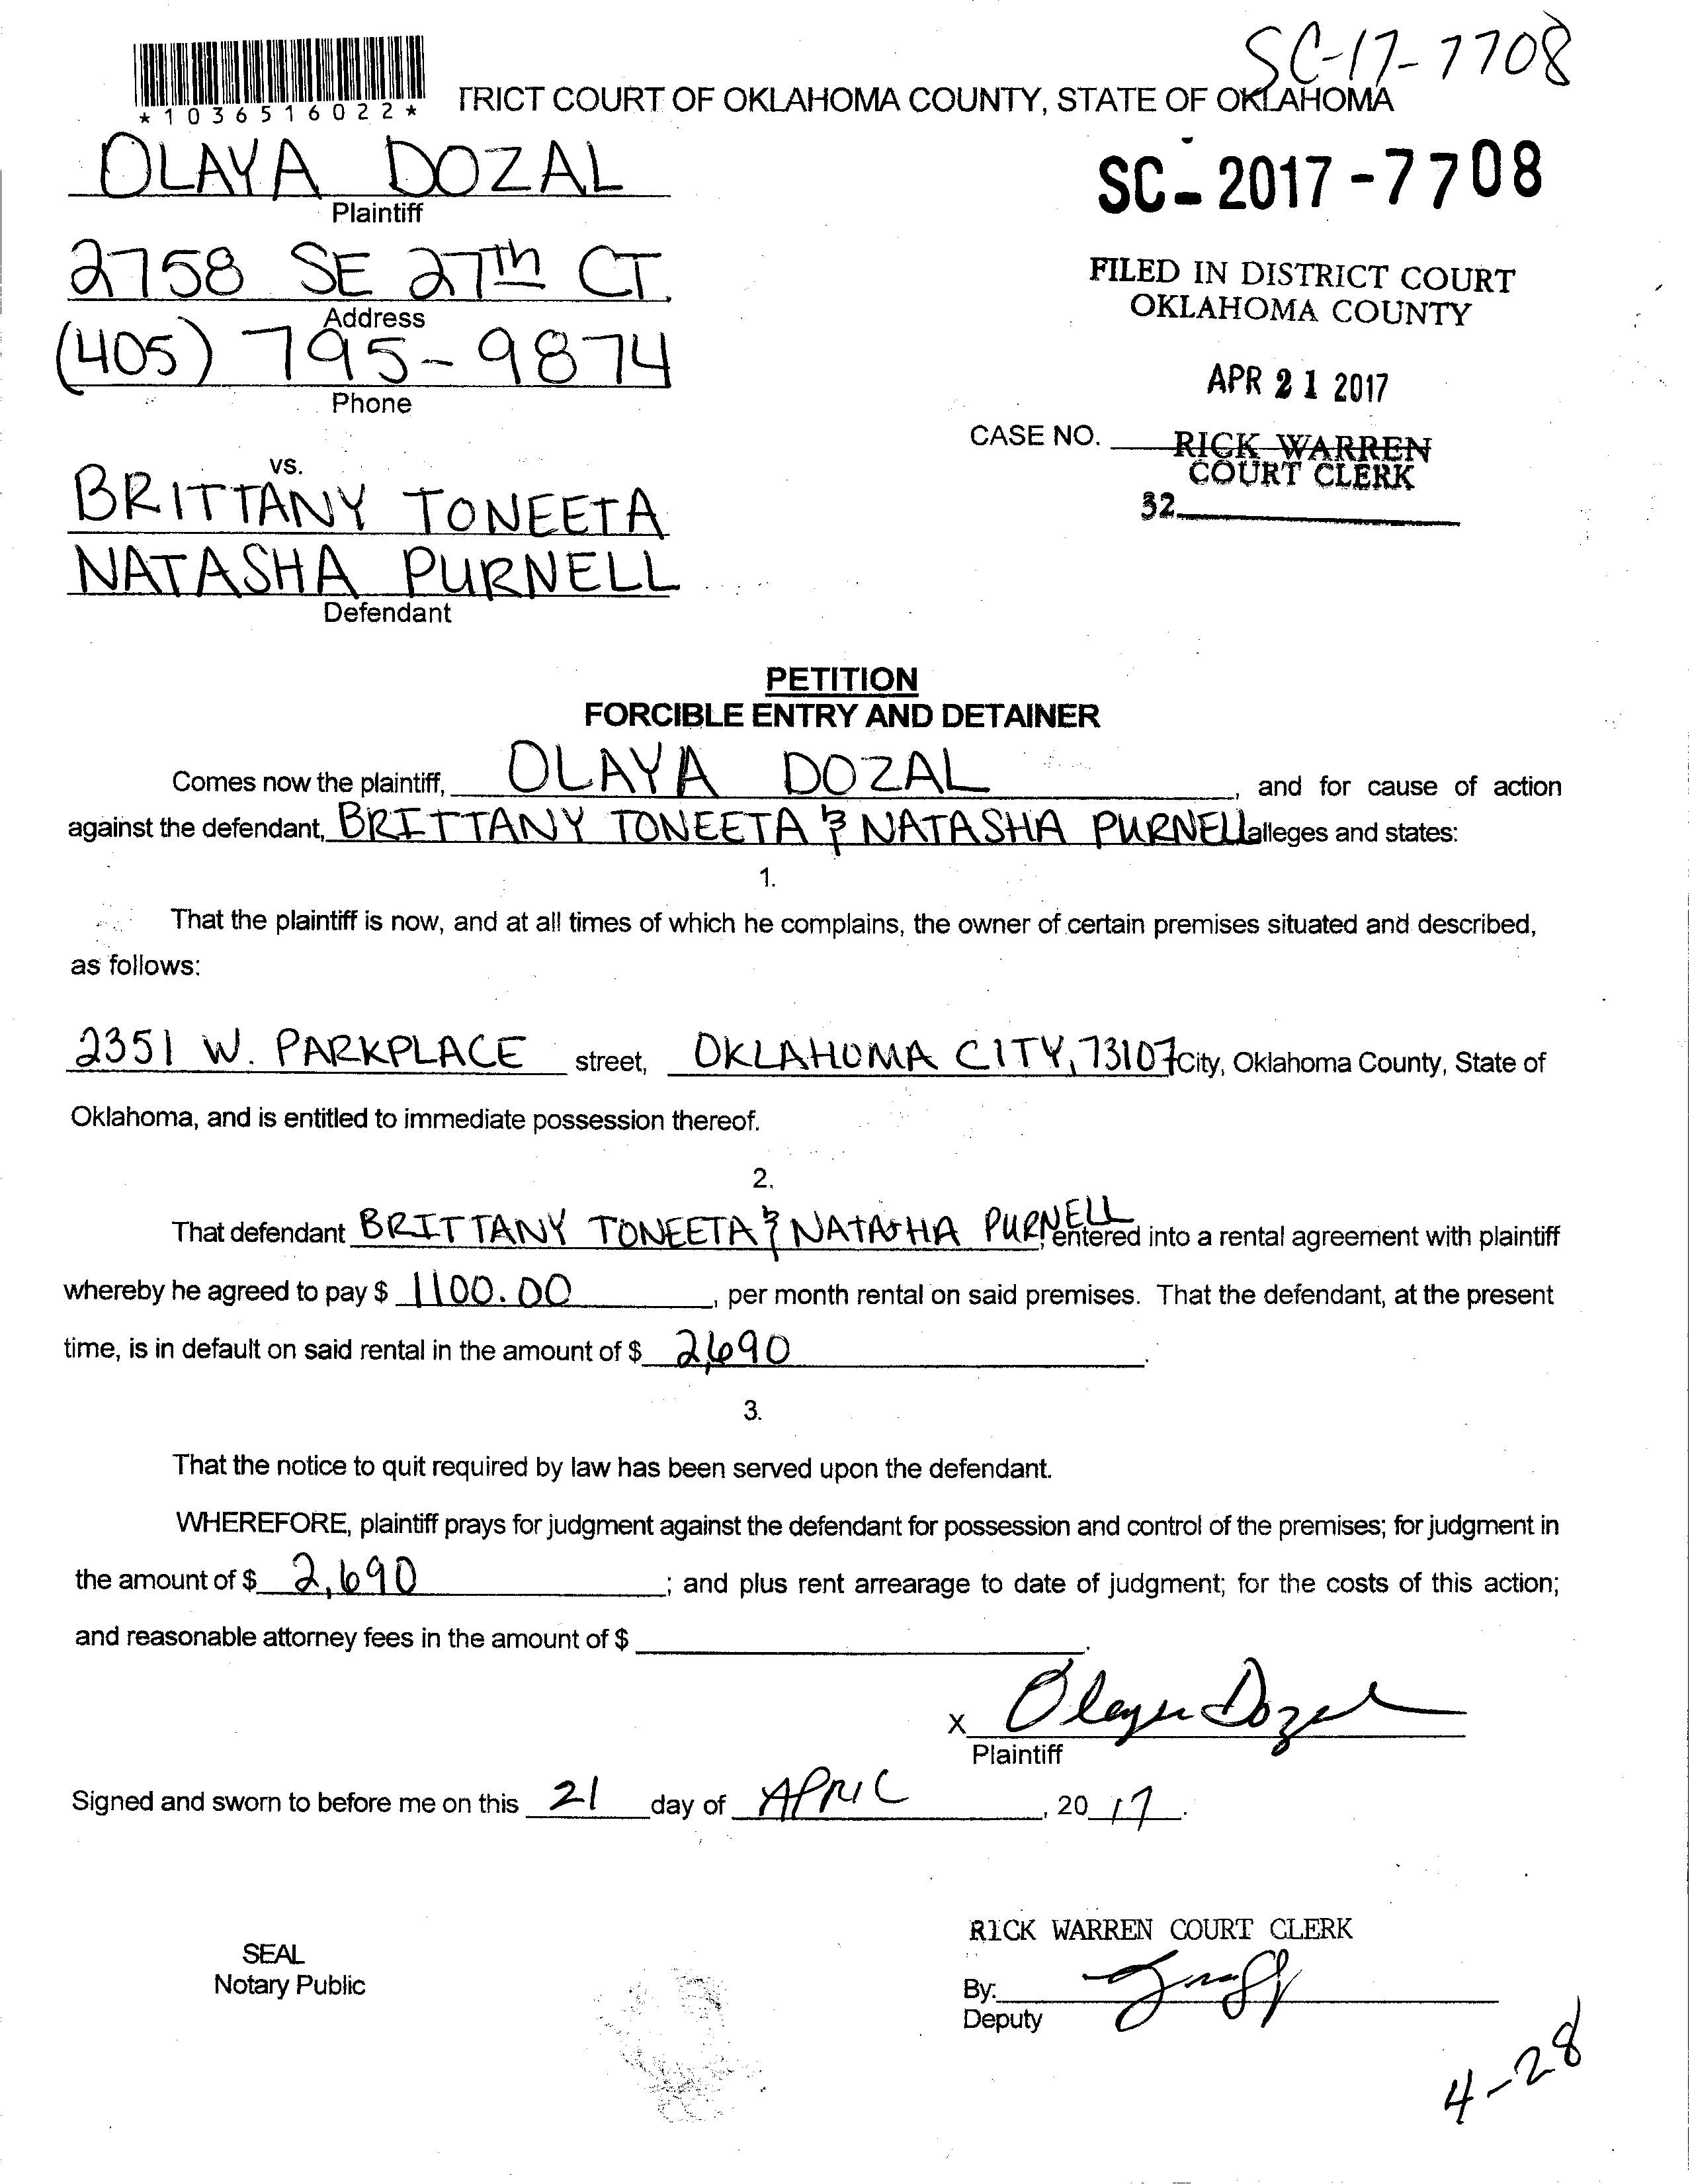 SC-17-7708
*1036516022*
TRICT COURT OF OKLAHOMA COUNTY, STATE OF OKLAHOMA
OLAYA DOZAL
Plaintiff
SC-2017-7708
2758 SE 27th CT.
Address
FILED IN DISTRICT COURT
OKLAHOMA COUNTY
(405) 795-9874
Phone
APR 21 2017
CASE NO.
RICK WARREN
COURT CLERK
32
vs.
BRITTANY TONEETA
NATASHA PURNELL
Defendant
PETITION
FORCIBLE ENTRY AND DETAINER
Comes now the plaintiff, OLAYA DOZAL, and for cause of action
against the defendant, BRITTANY TONEETA & NATASHA PURNELL alleges and states:
1.
That the plaintiff is now, and at all times of which he complains, the owner of certain premises situated and described,
as follows:
2351 W. PARKPLACE street, OKLAHOMA CITY, 73107 City, Oklahoma County, State of
Oklahoma, and is entitled to immediate possession thereof.
2.
That defendant BRITTANY TONEETA & NATASHA PURNELL, entered into a rental agreement with plaintiff
whereby he agreed to pay $ 1100.00, per month rental on said premises. That the defendant, at the present
time, is in default on said rental in the amount of $ 2,690.
3.
That the notice to quit required by law has been served upon the defendant.
WHEREFORE, plaintiff prays for judgment against the defendant for possession and control of the premises; for judgment in
the amount of $ 2,690; and plus rent arrearage to date of judgment; for the costs of this action;
and reasonable attorney fees in the amount of $ .
X Olaya Dozal
Plaintiff
Signed and sworn to before me on this 21 day of APRIL, 2017.
RICK WARREN COURT CLERK
SEAL
Notary Public
By:
Deputy
4-28